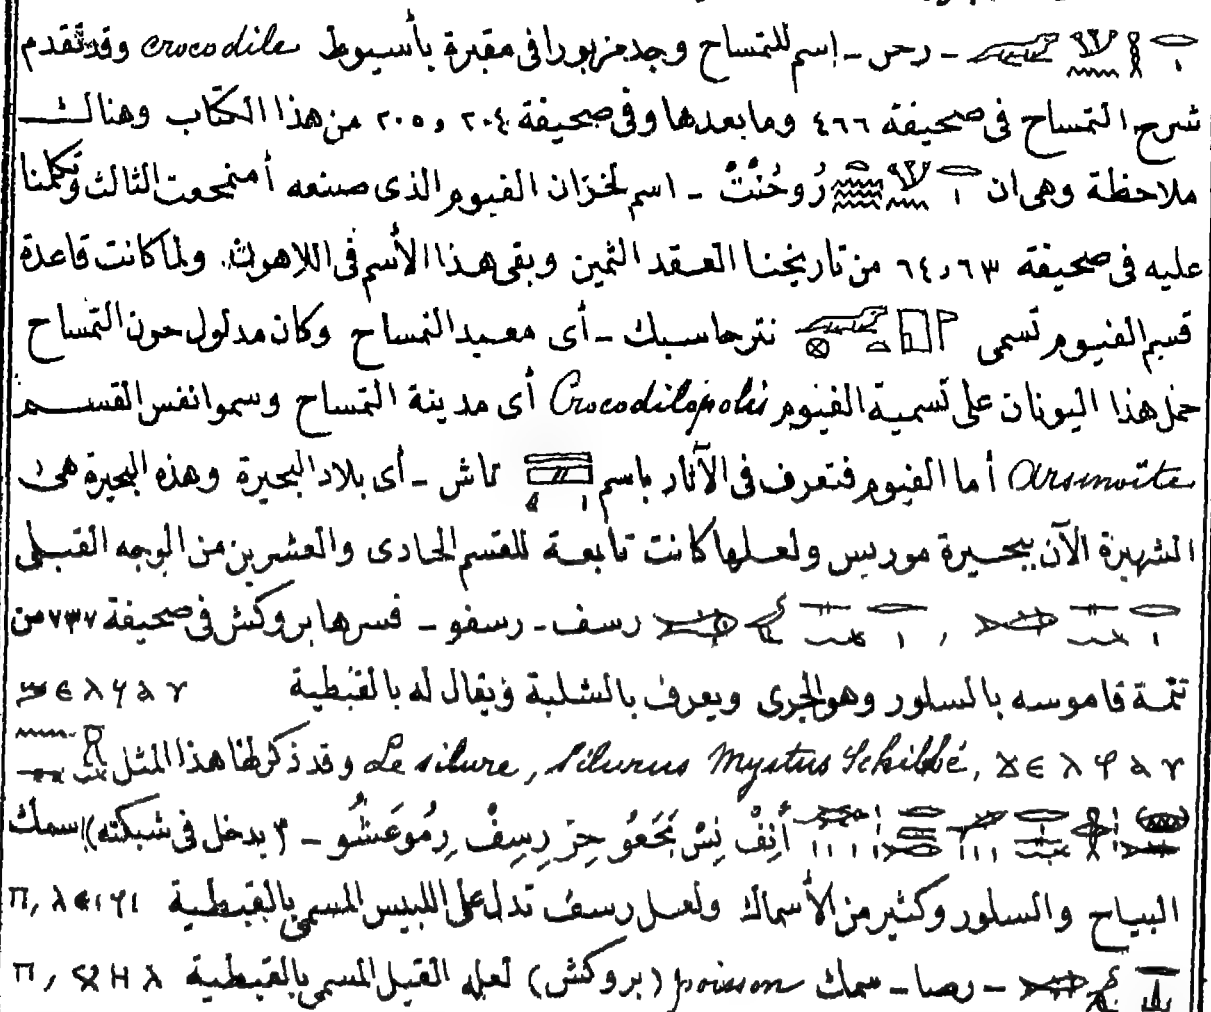 - رحن - إسم للتمساح وجد مزبورا فى مقبرة بأسيوط crocodile وقد تقدم
شرح التمساح فى صحيفة ٤٦٦ وما بعدها وفى صحيفة ٢٠٤ و ٢٠٥ من هذا الكتاب وهنالك
ملاحظة وهى ان رُوحُنْتْ - اسم لخزان الفيوم الذى صنعه أمنمحعت الثالث وتكلمنا
عليه فى صحيفة ٦٣ و ٦٤ من تاريخنا العقد الثمين وبقى هذا الأسم فى اللاهون. ولما كانت قاعدة
قسم الفيوم تسمى نترحاسبك - أى معبد التمساح وكان مدلول حون التمساح
حمل هذا اليونان على تسمية الفيوم Crocodilopolis أى مدينة التمساح وسموا نفس القسم
Arsinoïte أما الفيوم فتعرف فى الآثار باسم تاش - أى بلاد البحيرة وهذه البحيرة هى
الشهيرة الآن ببحيرة موريس ولعلها كانت تابعة للقسم الحادى والعشرين من الوجه القبلى
, رسف - رسفو - فسرها بروكش فى صحيفة ٧٣٧ من
تتمة قاموسه بالسلور وهو الجرى ويعرف بالشلبة ويقال له بالقبطية
Le silure, Silurus Mystus Schilbé, وقد ذكر لنا هذا المثل
أَنِفْ نِسْ بَحَعُو حِرْ رِسِفْ رِمُوعَشُو - (؟ يدخل فى شبكته) اسمك
البياح والسلور وكثير من الأسماك ولعل رسف تدل على اللبيس المسمى بالقبطية
- رصا - سمك poisson (بروكش) لعله القيل المسمى بالقبطية